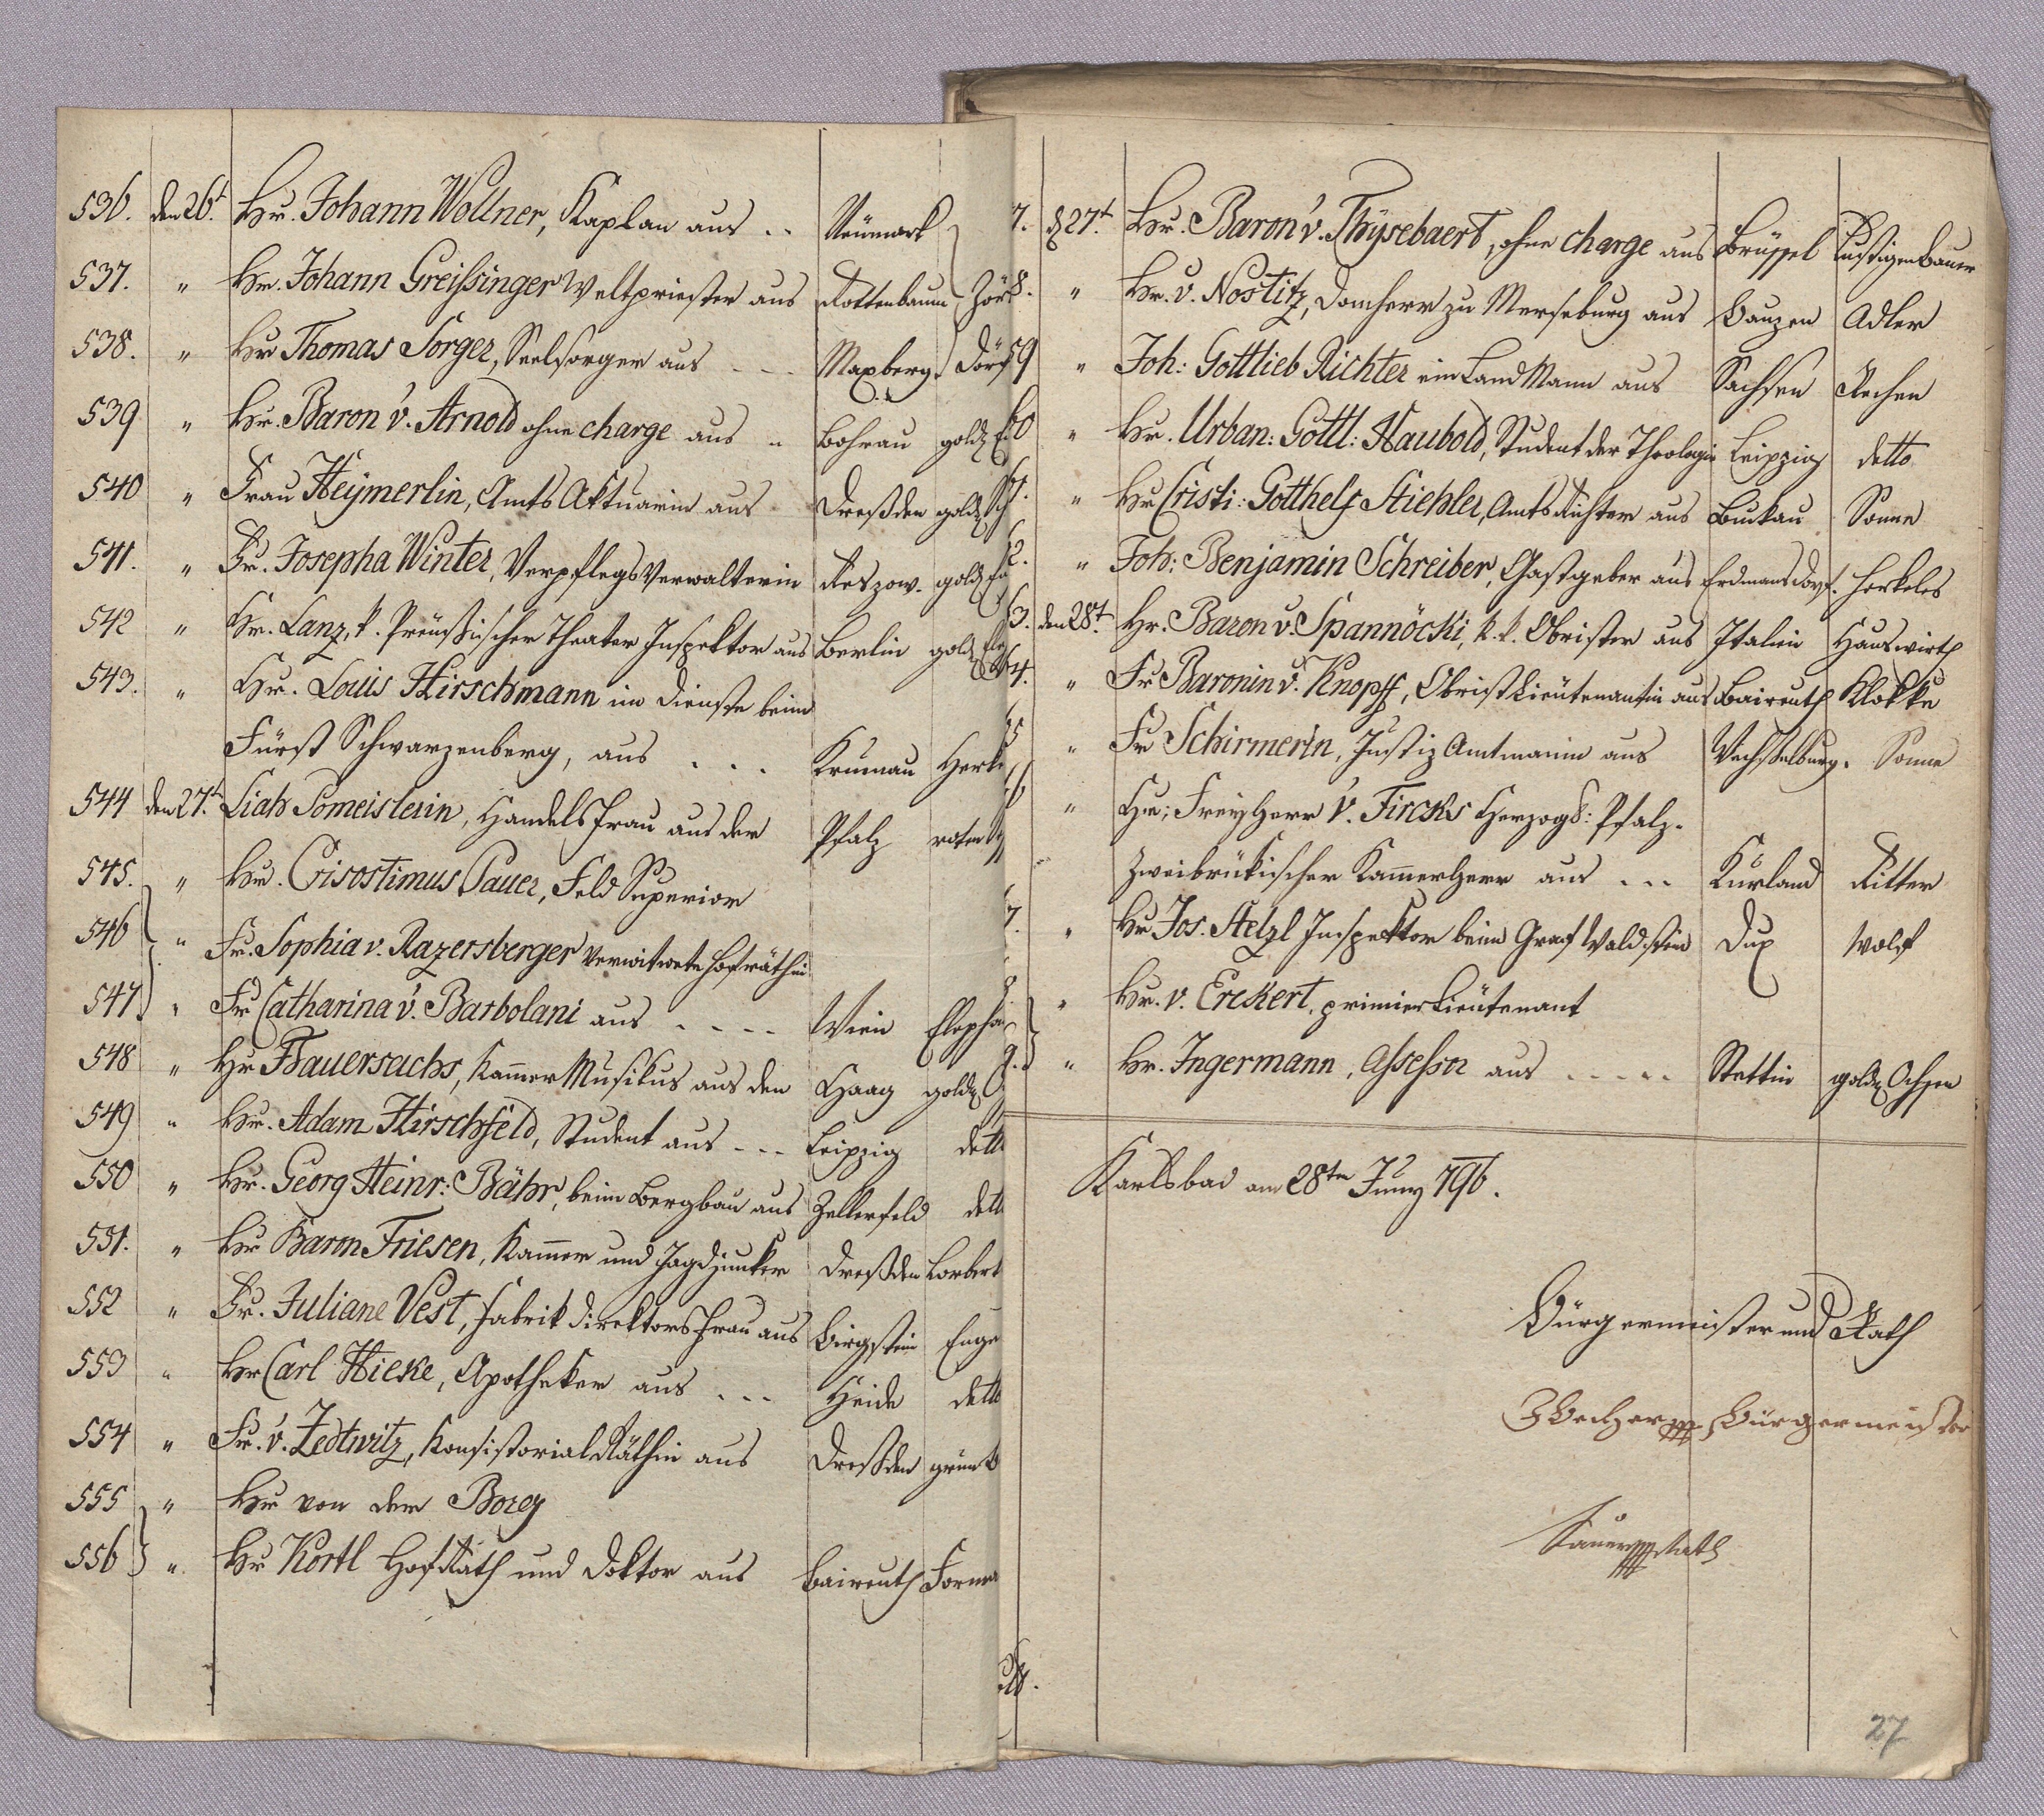 536. den 26.t Hr. Johann Wollner, Kaplan aus .. Neümark
537. " Hr. Johann Greißinger Weltpriester aus Rottenbaum
538. " Hr Thomas Sorger, Seelsorger aus - - - Maxberg. Dorf
539 " Hr. Baron v. Arnold ohne charge aus " Bohrau gold
540 " Frau Heÿmerlin, Amts Aktuarin aus Dreßden gold
541. " Fr. Josepha Winter, Verpflegs Verwalterin Reszow. gold
542 " Hr. Lanz, k. Preüßischer Theater Inspektor aus Berlin gold
543. " Hr. Louis Hirschmann im Dienste beim
Fürst Schwarzenberg, aus . . . Krumau Herk
544 den 27.t Liah Someislerin, Handels Frau aus der Pfalz roten
545. " Hr. Crisostimus Pauer, Feld Superior
546 " Fr. Sophia v. Razersberger verwitwete Hofräthin
547 " Fr Catharina v. Barbolani aus - - - - Wien Elepha
548 " Hr Bauersachs, Kammer Musikus aus den Haag gold
549 " Hr. Adam Hirschfeld, Student aus - - - Leipzig dett
550 " Hr. Georg Heinr: Bähr, beim Bergbau aus Zellerfeld dett
551. " Hr Baron Friesen, Kammer und Jagdjunker Dreßden Lorber
552 " Fr. Juliane Vest, Fabrik Direktors Frau aus Birgstein Enge
553 " Hr Carl Hieke, Apotheker aus - - - Heide dett
554 " Fr. v. Zedtwitz, Konsistorial Räthin aus Dreßden grün
555 " Hr von der Borg
556 " Hr Kortl Hof Rath und Doktor aus Baireuth
7. d 27.t Hr. Baron v. Thÿsebaert, ohne charge aus Brüssel Lustigen Bauer
8. " Hr. v. Nostitz, Domherr zu Merseburg aus Bauzen Adler
59 " Joh: Gottlieb Richter ein Land Mann aus Sachsen Rechen
60 " Hr. Urban: Gottl: Haubold, Student der Theologie Leipzig detto
61. " Hr Cristi: Gotthelf Stiehler, Amts Richter aus Buckau Sonne
62. " Joh: Benjamin Schreiber, Gastgeber aus Erdmansdorf. Herkeles
63. den 28.t Hr. Baron v. Spannöcki, k. k. Obrister aus Italien Hauswirth
64. " Fr Baronin v. Knopff, Obrist Lieütenantin aus Baireuth Klokke
65 " Fr Schirmerin, Justiz Amtmanin aus Wechselburg. Sonne
66 " Hr; Freÿ Herr v. Fircks Herzogl: Pfalz-
Zweibrükischer Kammerherr aus - - - Kurland Ritter
7. " Hr Jos. Hetzl Inspektor beim Graf Waldstein Dux Wolf
8. " Hr. v. Erckert, primier Lieütenant
9. " Hr. Ingermann, Assessor aus - - - - - Stettin gold Ochsen
Karlsbad am 28ten Juny 796.
Bürgermeister und Rath
Becher Bürgermeister
Rath
27